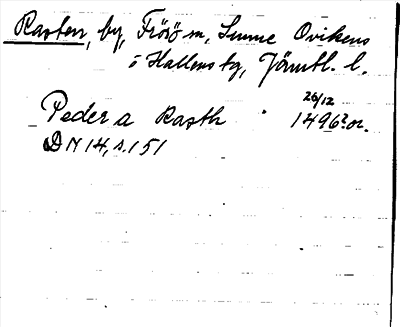 Rasten, by, Frösö m, Sunne Ovikens
i Hallens tg, Jämtl. l.
Peder a Rasth 26/12 1496? or.
DN 14, s. 151